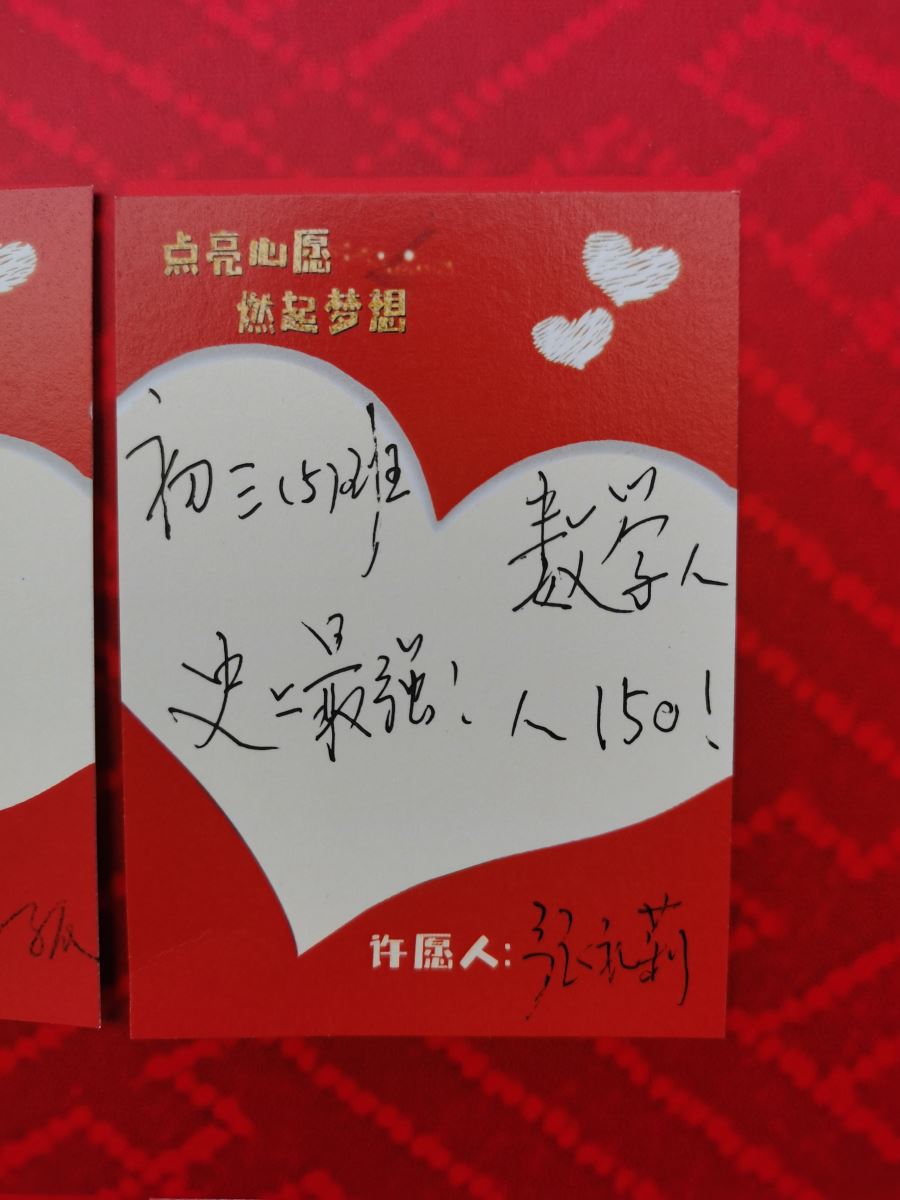 点亮心愿
燃起梦想
初三(5)班
史上最强!
数学人
人150!
许愿人:张礼莉